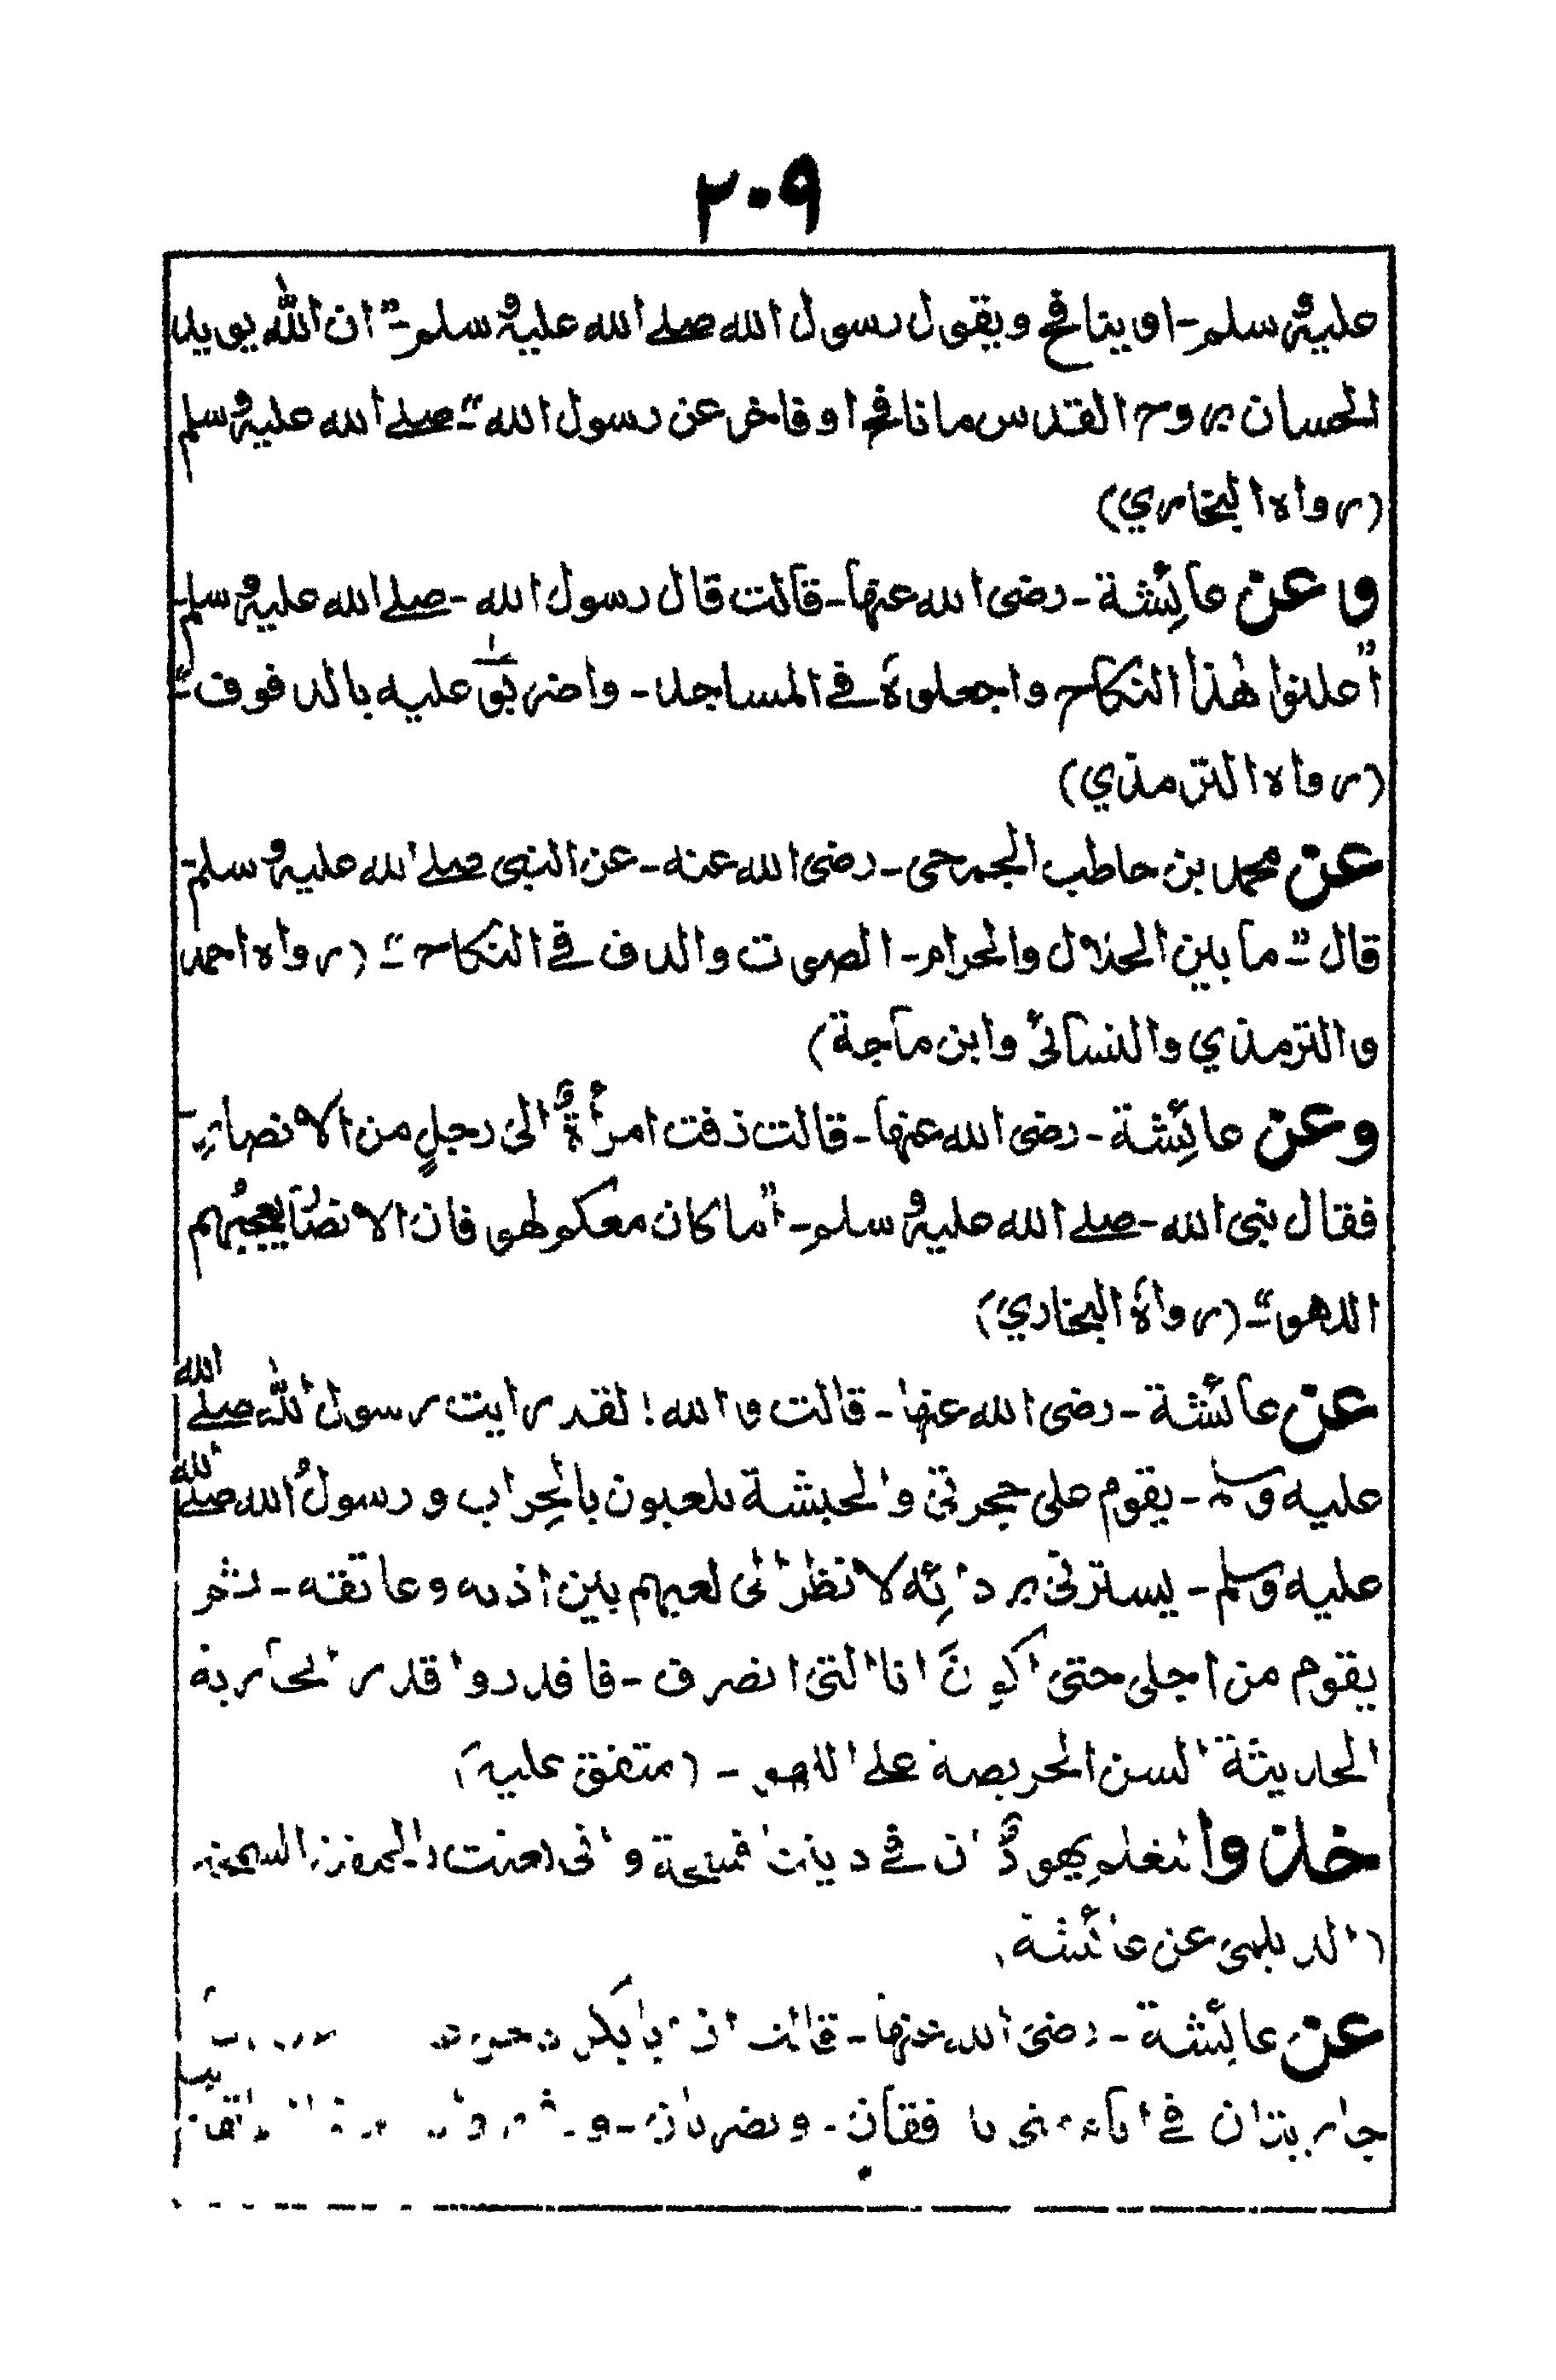 ٢٠٩
عليه وسلم - او ينافح ويقول رسول الله صلے الله عليه وسلم - "ان الله يويد
الحسان بروح القدس ما نافح او فاخر عن رسول الله" - صلے الله عليه وسلم
(رواه البخاري)
وعن عائشة - رضى الله عنها - قالت قال رسول الله - صلے الله عليه وسلم -
"اعلنوا هٰذا النكاح واجعلوهُ فے المساجد - واضربوا عليه بالدفوف" -
(رواه الترمذي)
عن محمد بن حاطب الجمحى - رضى الله عنه - عن النبى صلے الله عليه وسلم
قال "- ما بين الحلال والحرام - الصوت والدف فے النكاح" - (رواه احمد
والترمذي والنسائى وابن ماجة)
وعن عائِشة - رضى الله عنها - قالت زفت امرأةٌ الى رجلٍ من الانصارِ -
فقال نبى الله - صلے الله عليه وسلم - "اما كان معكم لهو فان الانصار يعجبُهم
اللهو" - (رواهُ البخاري)
عن عائشة - رضى الله عنها - قالت والله! لقد رايت رسول الله صلے الله
عليه وسلم - يقوم على حجرتى والحبشة يلعبون بالحِراب ورسولُ الله صلے الله
عليه وسلم - يسترنى بردائِه لانظر الى لعبهم بين اذنه وعاتقه - ثم
يقوم من اجلى حتى اكونَ انا التى انصرف - فاقدروا قدر الجارية
الحديثة السن الحريصة على اللهو - (متفق عليه)
خذوا لتعلم يهودُ ان فے ديننا فسحة وانى بعثت بالحنفية السمحة
(الديلمى عن عائشة)
عن عائِشة - رضى الله عنها - قالت ان ابا بكر دخل
جاريتان فے ايام منى فقان - وتضربان - و